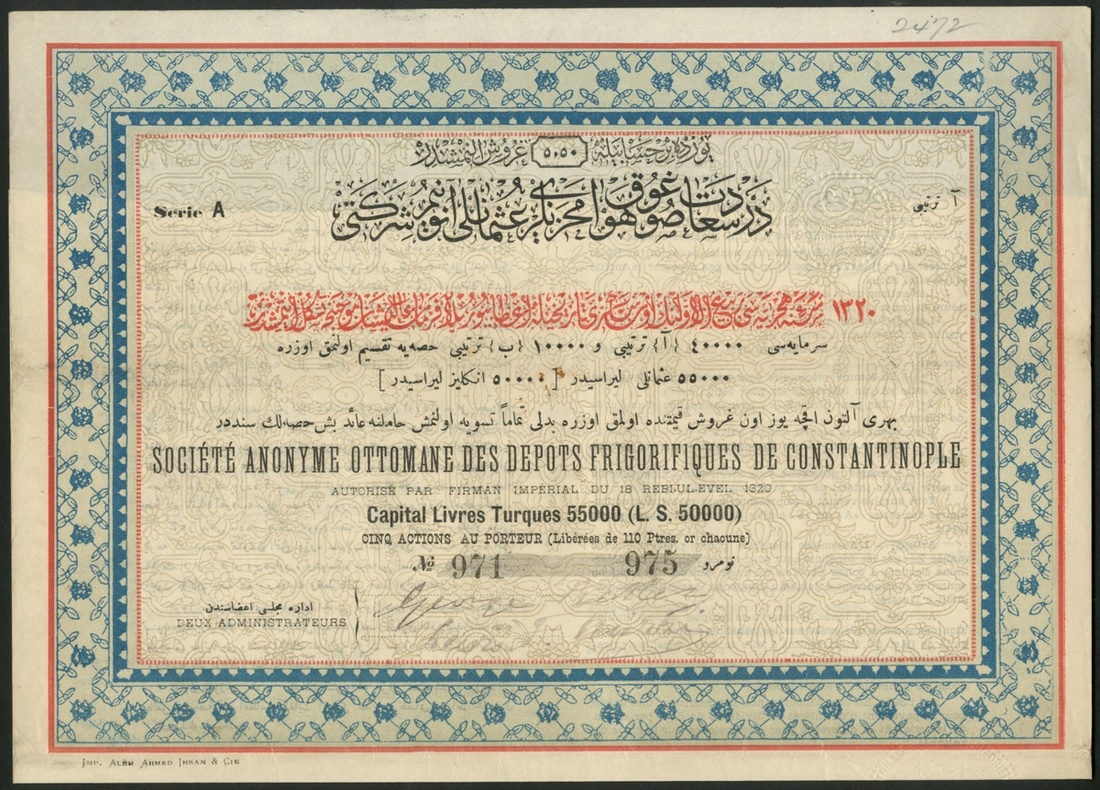 2472
يوزده بر حسابيله ٥،٥٠ غروش آلنمشدر
درسعادت صوغوق هوا مخزنلرى عثمانلى آنونيم شركتى
Serie A
آ ترتيبى
١٣٢٠ سنهٔ هجريه‌سى ربيع الاولنك
سرمايه‌سى ٤٠٠٠٠ {آ} ترتيبى و ١٠٠٠٠ {ب} ترتيبى حصه‌يه تقسيم اولنمق اوزره
٥٥٠٠٠ عثمانلى ليراسيدر [٥٠٠٠٠ انكليز ليراسيدر]
بهرى آلتون اقچه يوز اون غروش قيمتنده اولمق اوزره بدلى تماماً تسويه اولنمش حاملنه عائد بش حصه‌لك سنددر
SOCIÉTÉ ANONYME OTTOMANE DES DEPOTS FRIGORIFIQUES DE CONSTANTINOPLE
AUTORISÉ PAR FIRMAN IMPÉRIAL DU 18 REBI-UL-EVEL 1320
Capital Livres Turques 55000 (L. S. 50000)
CINQ ACTIONS AU PORTEUR (Libérées de 110 Ptres. or chacune)
№ 971 975 نومرو
اداره مجلسى اعضاسندن
DEUX ADMINISTRATEURS
IMP. ALEM AHMED IHSAN & CIE